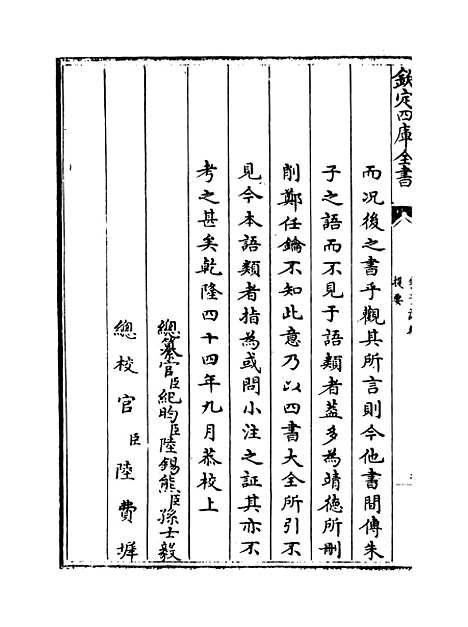 欽定四庫全書
提要
而況後之書乎觀其所言則今他書間傳朱
子之語而不見于語類者葢多為靖德所刪
削鄭任鑰不知此意乃以四書大全所引不
見今本語類者指為或問小注之証其亦不
考之甚矣乾隆四十四年九月恭校上
總纂官臣紀昀臣陸錫熊臣孫士毅
總校官臣陸費墀